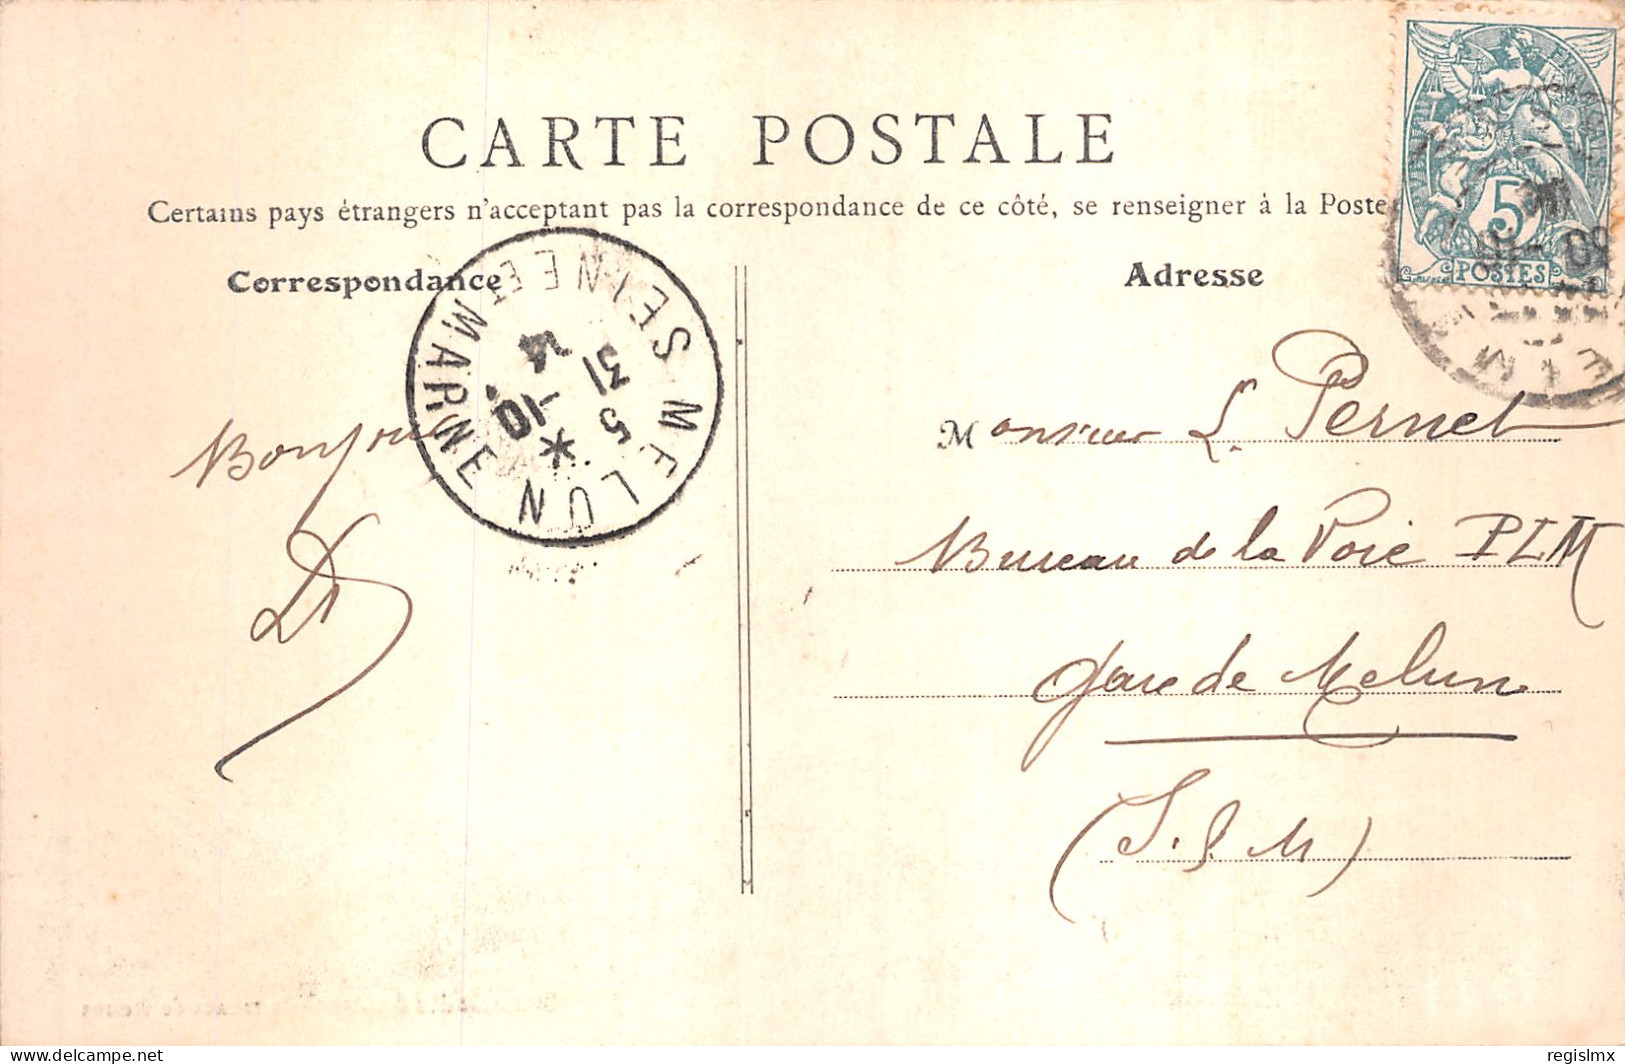 CARTE POSTALE
Certains pays étrangers n'acceptant pas la correspondance de ce côté, se renseigner à la Poste
Correspondance
Adresse
5
POSTES
MELUN SEINE ET MARNE
5
31
10
14
Bonjour
Monsieur L. Pernet
Bureau de la Voie PLM
Gare de Melun
(S. & M)
delcampe.net
regislmx